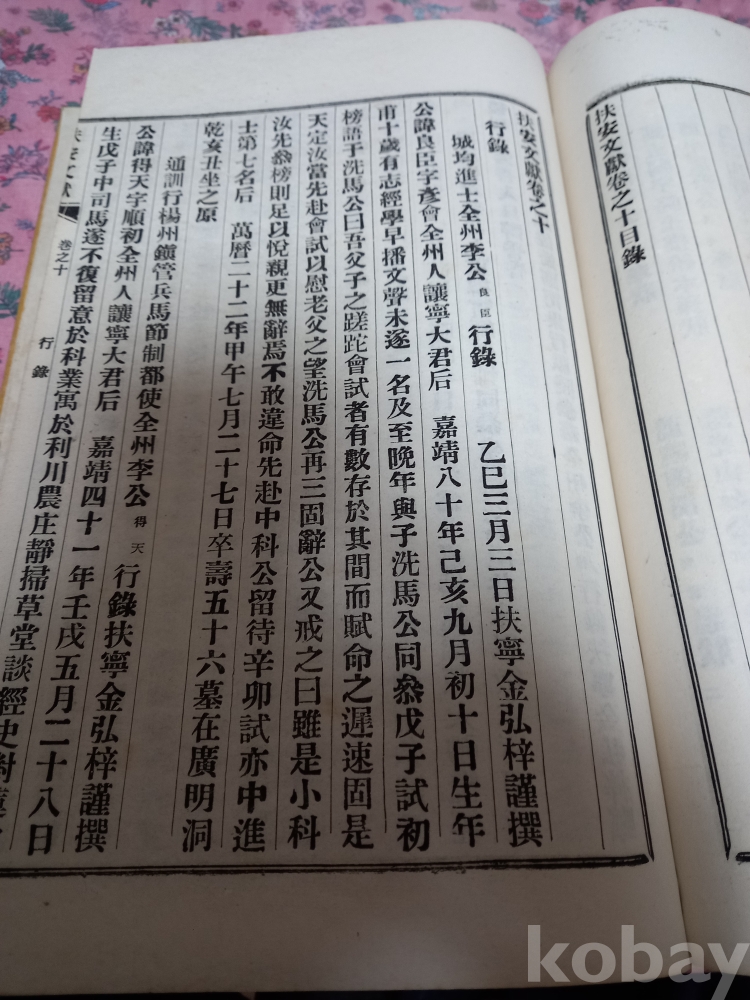 扶安文獻卷之十目錄
扶安文獻卷之十
行錄
城均進士全州李公良臣行錄 乙巳三月三日扶寧金弘梓謹撰
公諱良臣字彥會全州人讓寧大君后 嘉靖八十年己亥九月初十日生年
甫十歲有志經學早播文聲未遂一名及至晩年與子洗馬公同叅戊子試初
榜語于洗馬公曰吾父子之蹉跎會試者有數存於其間而賦命之遲速固是
天定汝當先赴會試以慰老父之望洗馬公再三固辭公又戒之曰雖是小科
汝先叅榜則足以悅親更無辭焉不敢違命先赴中科公留待辛卯試亦中進
士第七名后 萬曆二十二年甲午七月二十七日卒壽五十六墓在廣明洞
乾亥丑坐之原
通訓行楊州鎭管兵馬節制都使全州李公得天行錄扶寧金弘梓謹撰
公諱得天字順初全州人讓寧大君后 嘉靖四十一年壬戌五月二十八日
生戊子中司馬遂不復留意於科業寓於利川農庄靜掃草堂談經史
文獻 卷之十 行錄
kobay